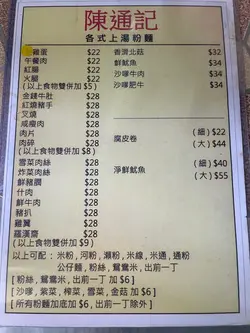 陳通記
各式上湯粉麵
雞蛋 $22
午餐肉 $22
紅腸 $22
火腿 $22
(以上食物雙併加 $5)
金錢牛肚 $28
紅燒豬手 $28
叉燒 $28
咸瘦肉 $28
肉片 $28
肉碎 $28
(以上食物雙併加 $8)
雪菜肉絲 $28
炸菜肉絲 $28
鮮豬膶 $28
什肉 $28
鮮牛肉 $28
豬扒 $28
雞翼 $28
羅漢齋 $28
(以上食物雙併加 $9)
香滑北菇 $34
鮮魷魚 $34
沙嗲牛肉 $34
沙嗲肥牛 $34
腐皮卷 (細) $22
(大) $44
淨鮮魷魚 (細) $40
(大) $55
以上可配 : 米粉, 河粉, 瀨粉, 米線, 米通, 通粉
公仔麵, 粉絲, 鴛鴦米, 出前一丁
[ 粉絲, 鴛鴦米, 出前一丁 加 $6 ]
[ 沙嗲, 紫菜, 榨菜, 雪菜, 金菇 加 $6 ]
[ 所有粉麵加底加 $6, 出前一丁除外 ]